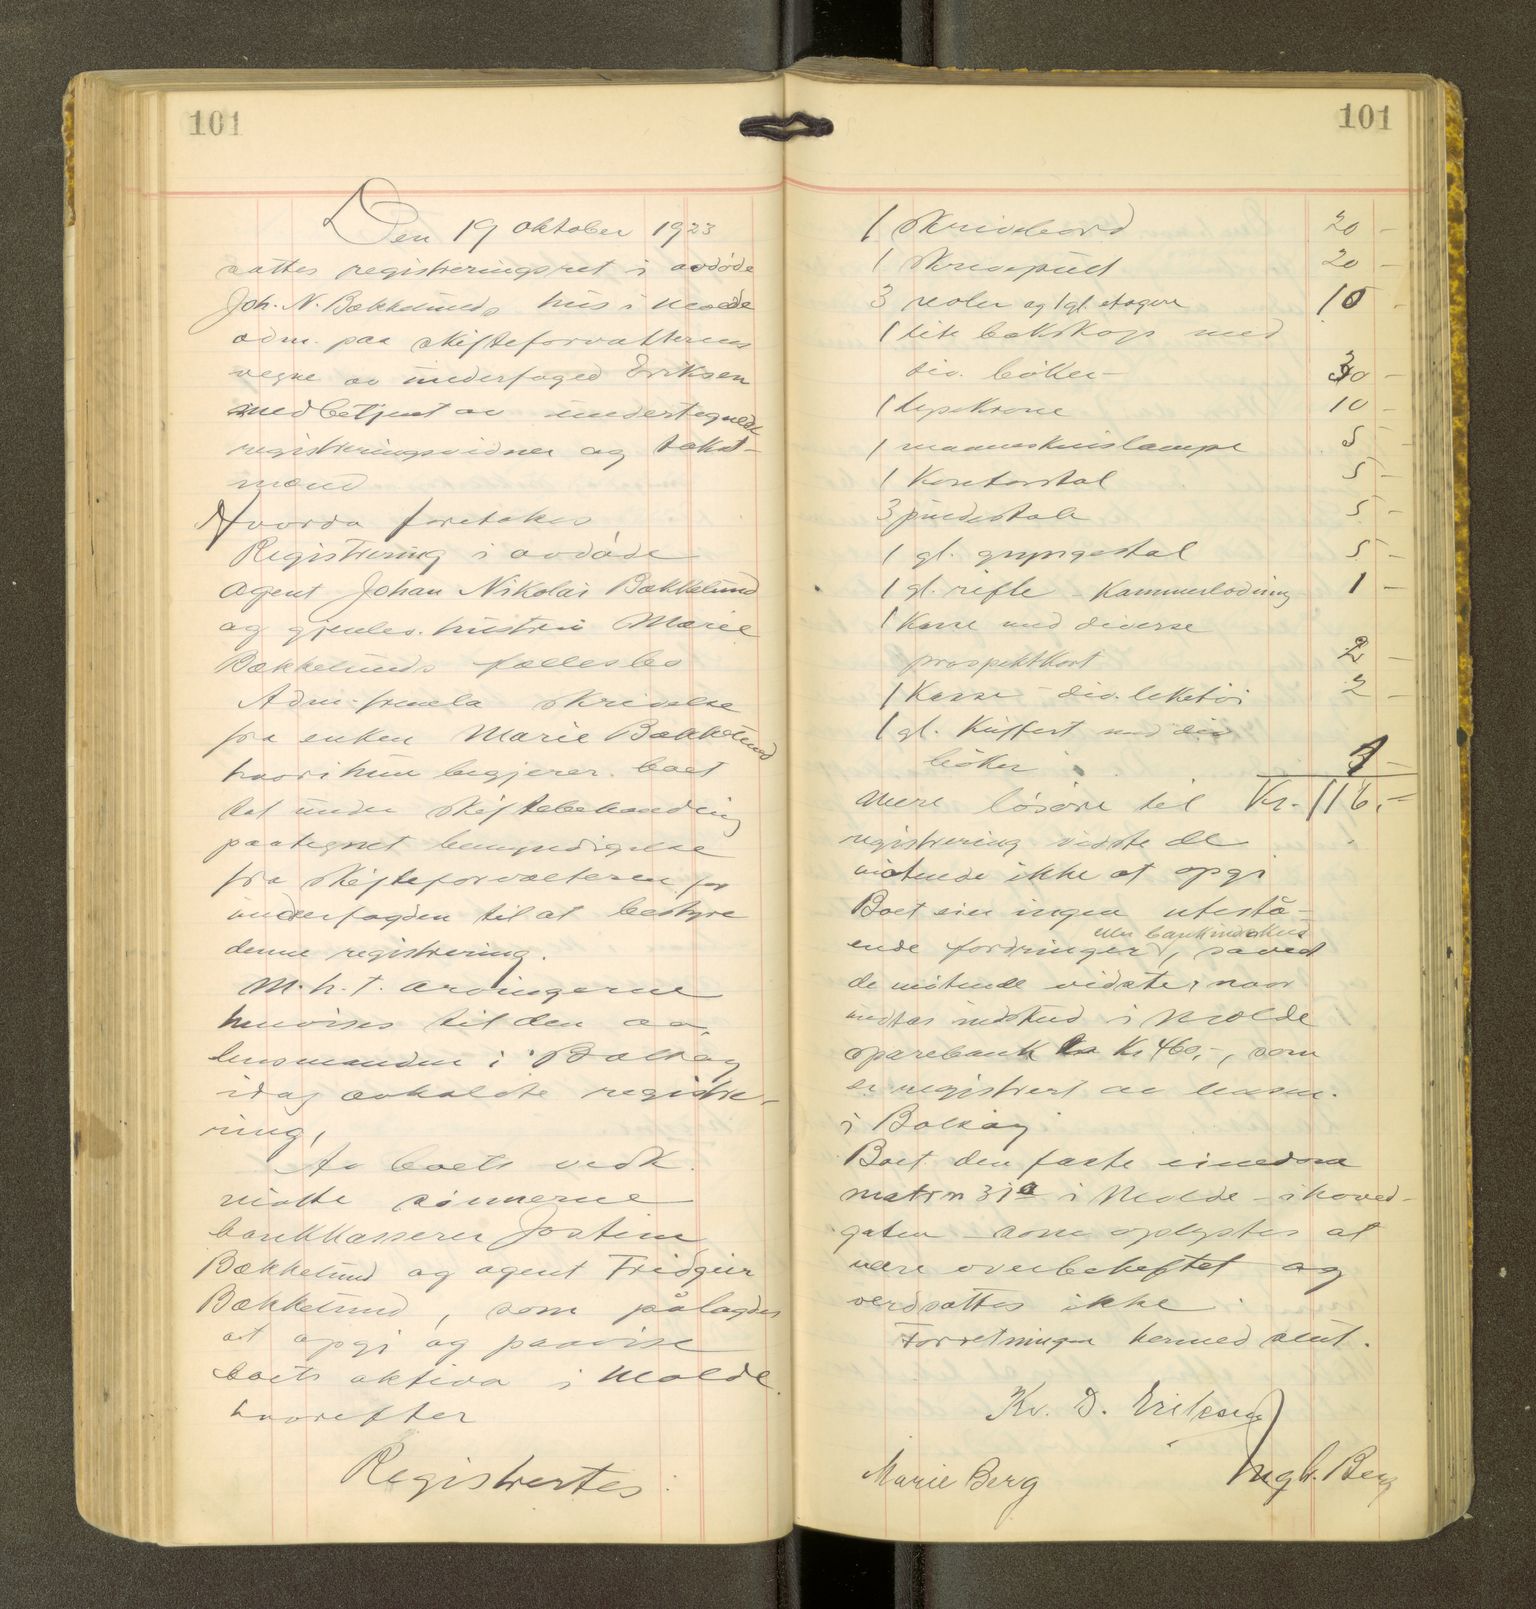 101
Den 19 oktober 1923
sattes registreringsret i avdøde
Joh. N. Bækkelunds hus i Molde
adm. paa skifteforvalterens
vegne av underfoged Eriksen
medbetjent av undertegnede
registreringsvidner og takst-
mænd
Hvorda foretokes
Registrering i avdøde
agent Johan Nikolai Bækkelund
og gjenlev. hustru Marie
Bækkelunds fællesbo
Adm. fremla skrivelse
fra enken Marie Bækkelund
hvori hun begjærer boet
tat under skiftebehandling
paategnet bemyndigelse
fra skifteforvalteren for
underfogden til at bestyre
denne registrering.
M.h.t. arvingerne
henvises til den av
lensmanden i Bolsøy
idag avholdte registre-
ring,
Av boets vedk.
møtte sønnerne
bankkasserer Jostein
Bækkelund og agent Fridgeir
Bækkelund, som pålagdes
at opgi og paavise
boets aktiva i Molde.
hvorefter
Registrertes:
101
1 skrivebord 20 -
1 skrivepult 20 -
3 reoler og 1 gl. etagere 10 -
1 lite bokskap med
div. bøker - 30 -
1 lysekrone 10 -
1 manneskinslampe 5 -
1 kontorstol 5 -
3 pindestole 5 -
1 gl. gyngestol 5 -
1 gl. rifle - kammerladning 1 -
1 kasse med diverse
prospektkort 2 -
1 kasse - div. leketøi 2 -
1 gl. kuffert med div
bøker 1 -
Mere løsøre til Kr. 116.-
registrering vidste de
møtende ikke at opgi
Boet eier ingen utestå-
eller bankindskud
ende fordringer, saaved
de møtende vidste, naar
undtas indskud i Molde
sparebank Kr 460,-, som
er registrert av lensm.
i Bolsøy
Boet den faste eiendom
matr n 31a i Molde - i hoved-
gaten - som oplystes at
være overbeheftet og
verdsattes ikke.
Forretningen hermed slut.
Kr. D. Eriksen
Marie Berg Ingb. Berg